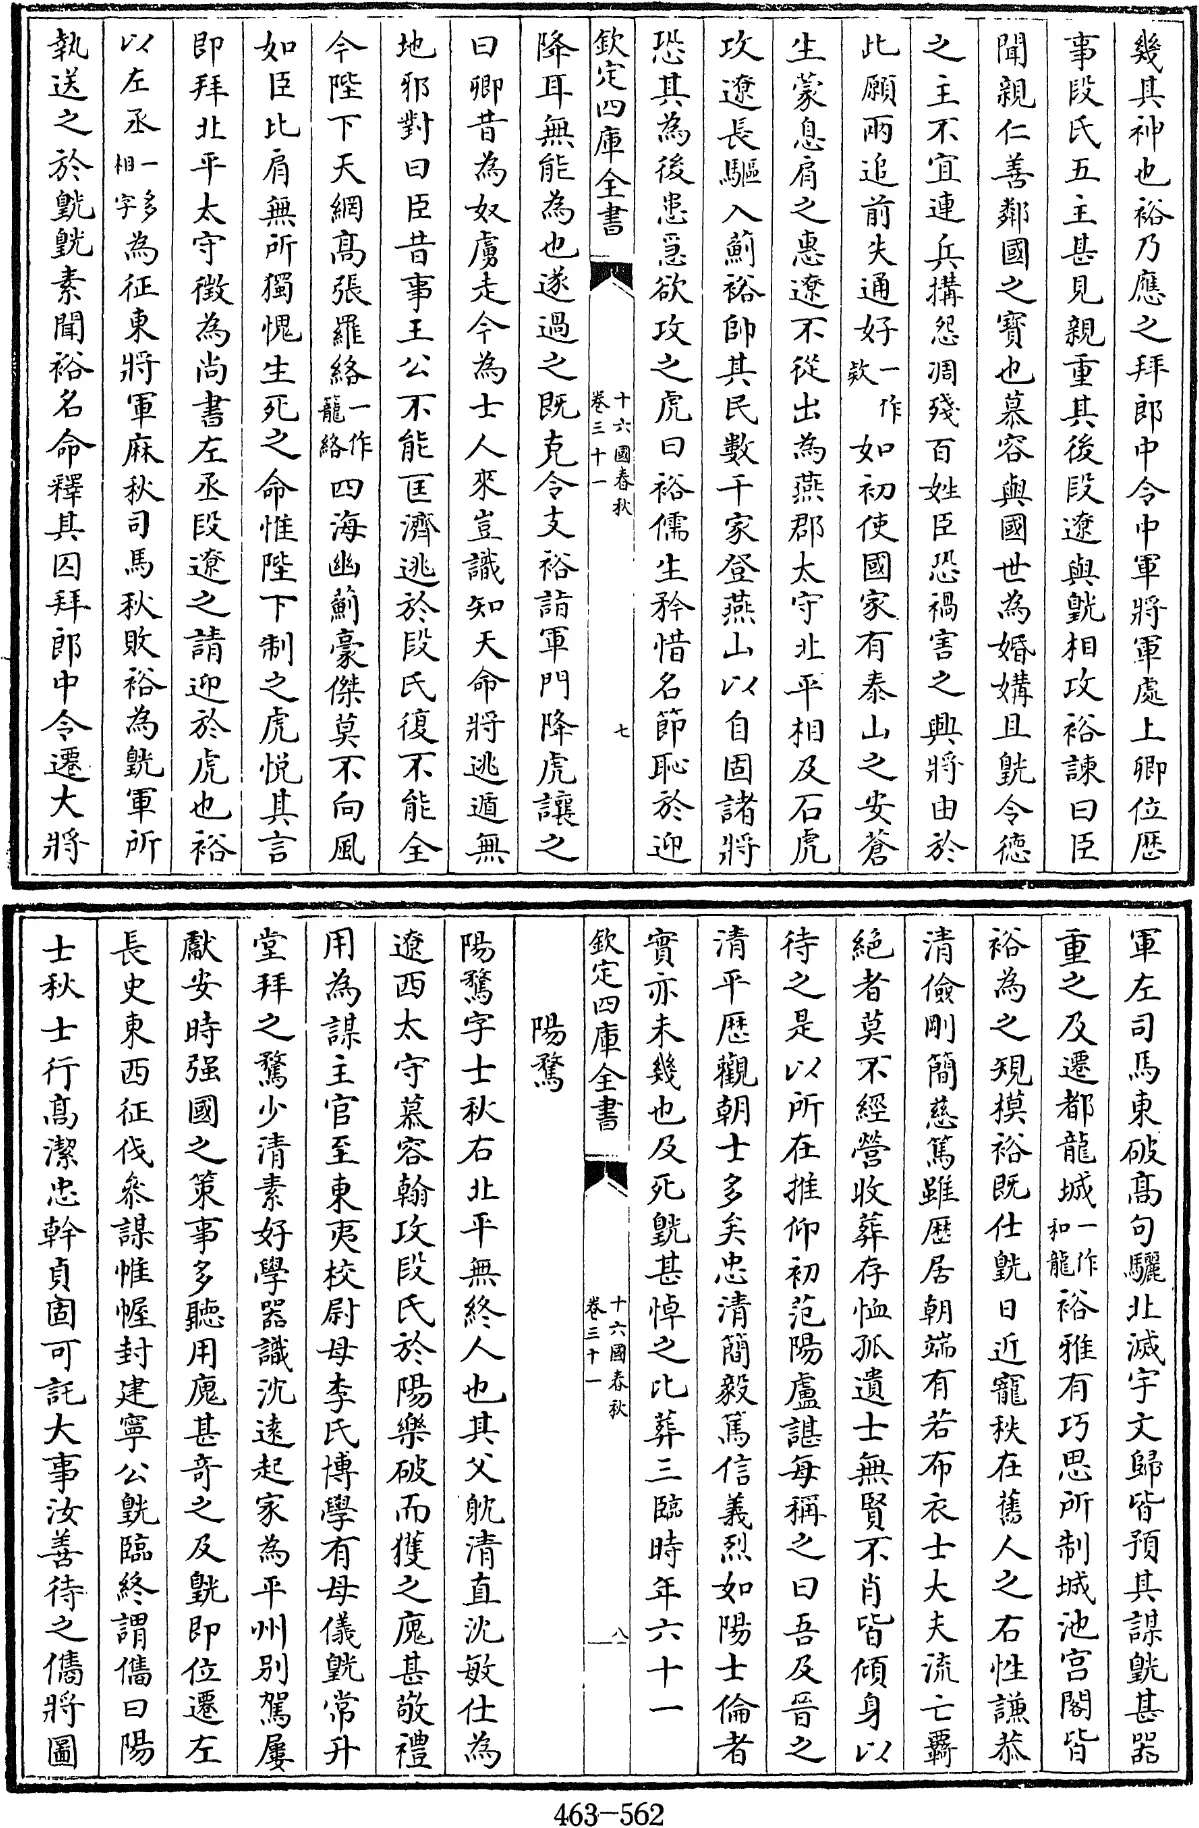 幾其神也裕乃應之拜郎中令中軍將軍處上卿位歴
事段氏五主甚見親重其後段遼與皝相攻裕諫曰臣
聞親仁善鄰國之寳也慕容與國世為婚媾且皝令徳
之主不宜連兵搆怨凋殘百姓臣恐禍害之興將由於
此願兩追前失通好一作欵如初使國家有泰山之安蒼
生蒙息肩之惠遼不從出為燕郡太守北平相及石虎
攻遼長驅入薊裕帥其民數千家登燕山以自固諸將
恐其為後患亟欲攻之虎曰裕儒生矜惜名節恥於迎
欽定四庫全書
十六國春秋
卷三十一
七
降耳無能為也遂過之既克令支裕詣軍門降虎讓之
曰卿昔為奴虜走今為士人來豈識知天命將逃遁無
地邪對曰臣昔事王公不能匡濟逃於段氏復不能全
今陛下天網髙張羅絡一作籠絡四海幽薊豪傑莫不向風
如臣比肩無所獨愧生死之命惟陛下制之虎悦其言
即拜北平太守徴為尚書左丞段遼之請迎於虎也裕
以左丞一多相字為征東將軍麻秋司馬秋敗裕為皝軍所
執送之於皝皝素聞裕名命釋其囚拜郎中令遷大將
軍左司馬東破髙句驪北滅宇文歸皆預其謀皝甚器
重之及遷都龍城一作和龍裕雅有巧思所制城池宫閣皆
裕為之規模裕既仕皝日近寵秩在舊人之右性謙恭
清儉剛簡慈篤雖歴居朝端有若布衣士大夫流亡羇
絶者莫不經營收葬存恤孤遺士無賢不肖皆傾身以
待之是以所在推仰初范陽盧諶每稱之曰吾及晉之
清平歴觀朝士多矣忠清簡毅篤信義烈如陽士倫者
實亦未幾也及死皝甚悼之比葬三臨時年六十一
欽定四庫全書
十六國春秋
卷三十一
八
陽騖
陽騖字士秋右北平無終人也其父躭清直沈敏仕為
遼西太守慕容翰攻段氏於陽樂破而獲之廆甚敬禮
用為謀主官至東夷校尉母李氏博學有母儀皝常升
堂拜之騖少清素好學器識沈逺起家為平州别駕屢
獻安時强國之策事多聽用廆甚竒之及皝即位遷左
長史東西征伐叅謀帷幄封建寧公皝臨終謂儁曰陽
士秋士行髙潔忠幹貞固可託大事汝善待之儁將圖
463-562